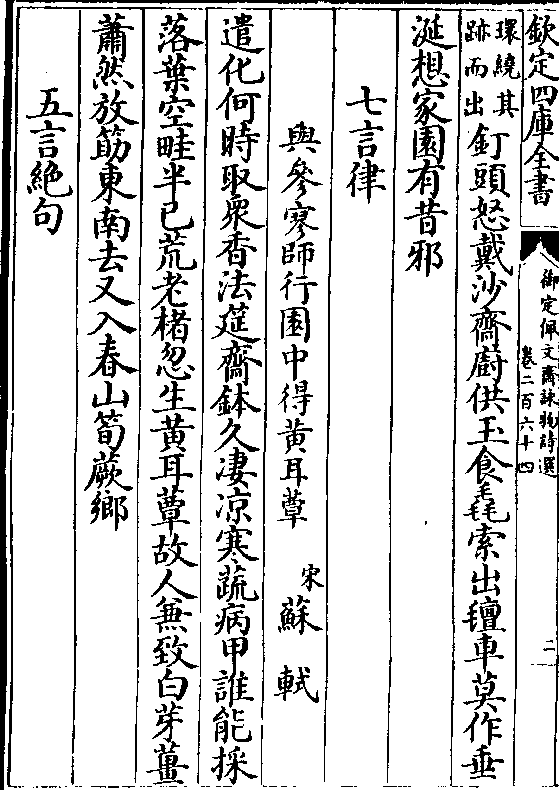 欽定四庫全書
御定佩文齋詠物詩選
卷二百六十四
二
環繞其
跡而出
釘頭怒戴沙齋廚供玉食毳索出氊車莫作垂
涎想家園有昔邪
七言律
與參寥師行園中得黃耳蕈
宋
蘇軾
遣化何時取衆香法筵齋鉢久凄凉寒蔬病甲誰能採
落葉空畦半已荒老楮忽生黃耳蕈故人兼致白芽薑
蕭然放筯東南去又入春山筍蕨鄉
五言絶句